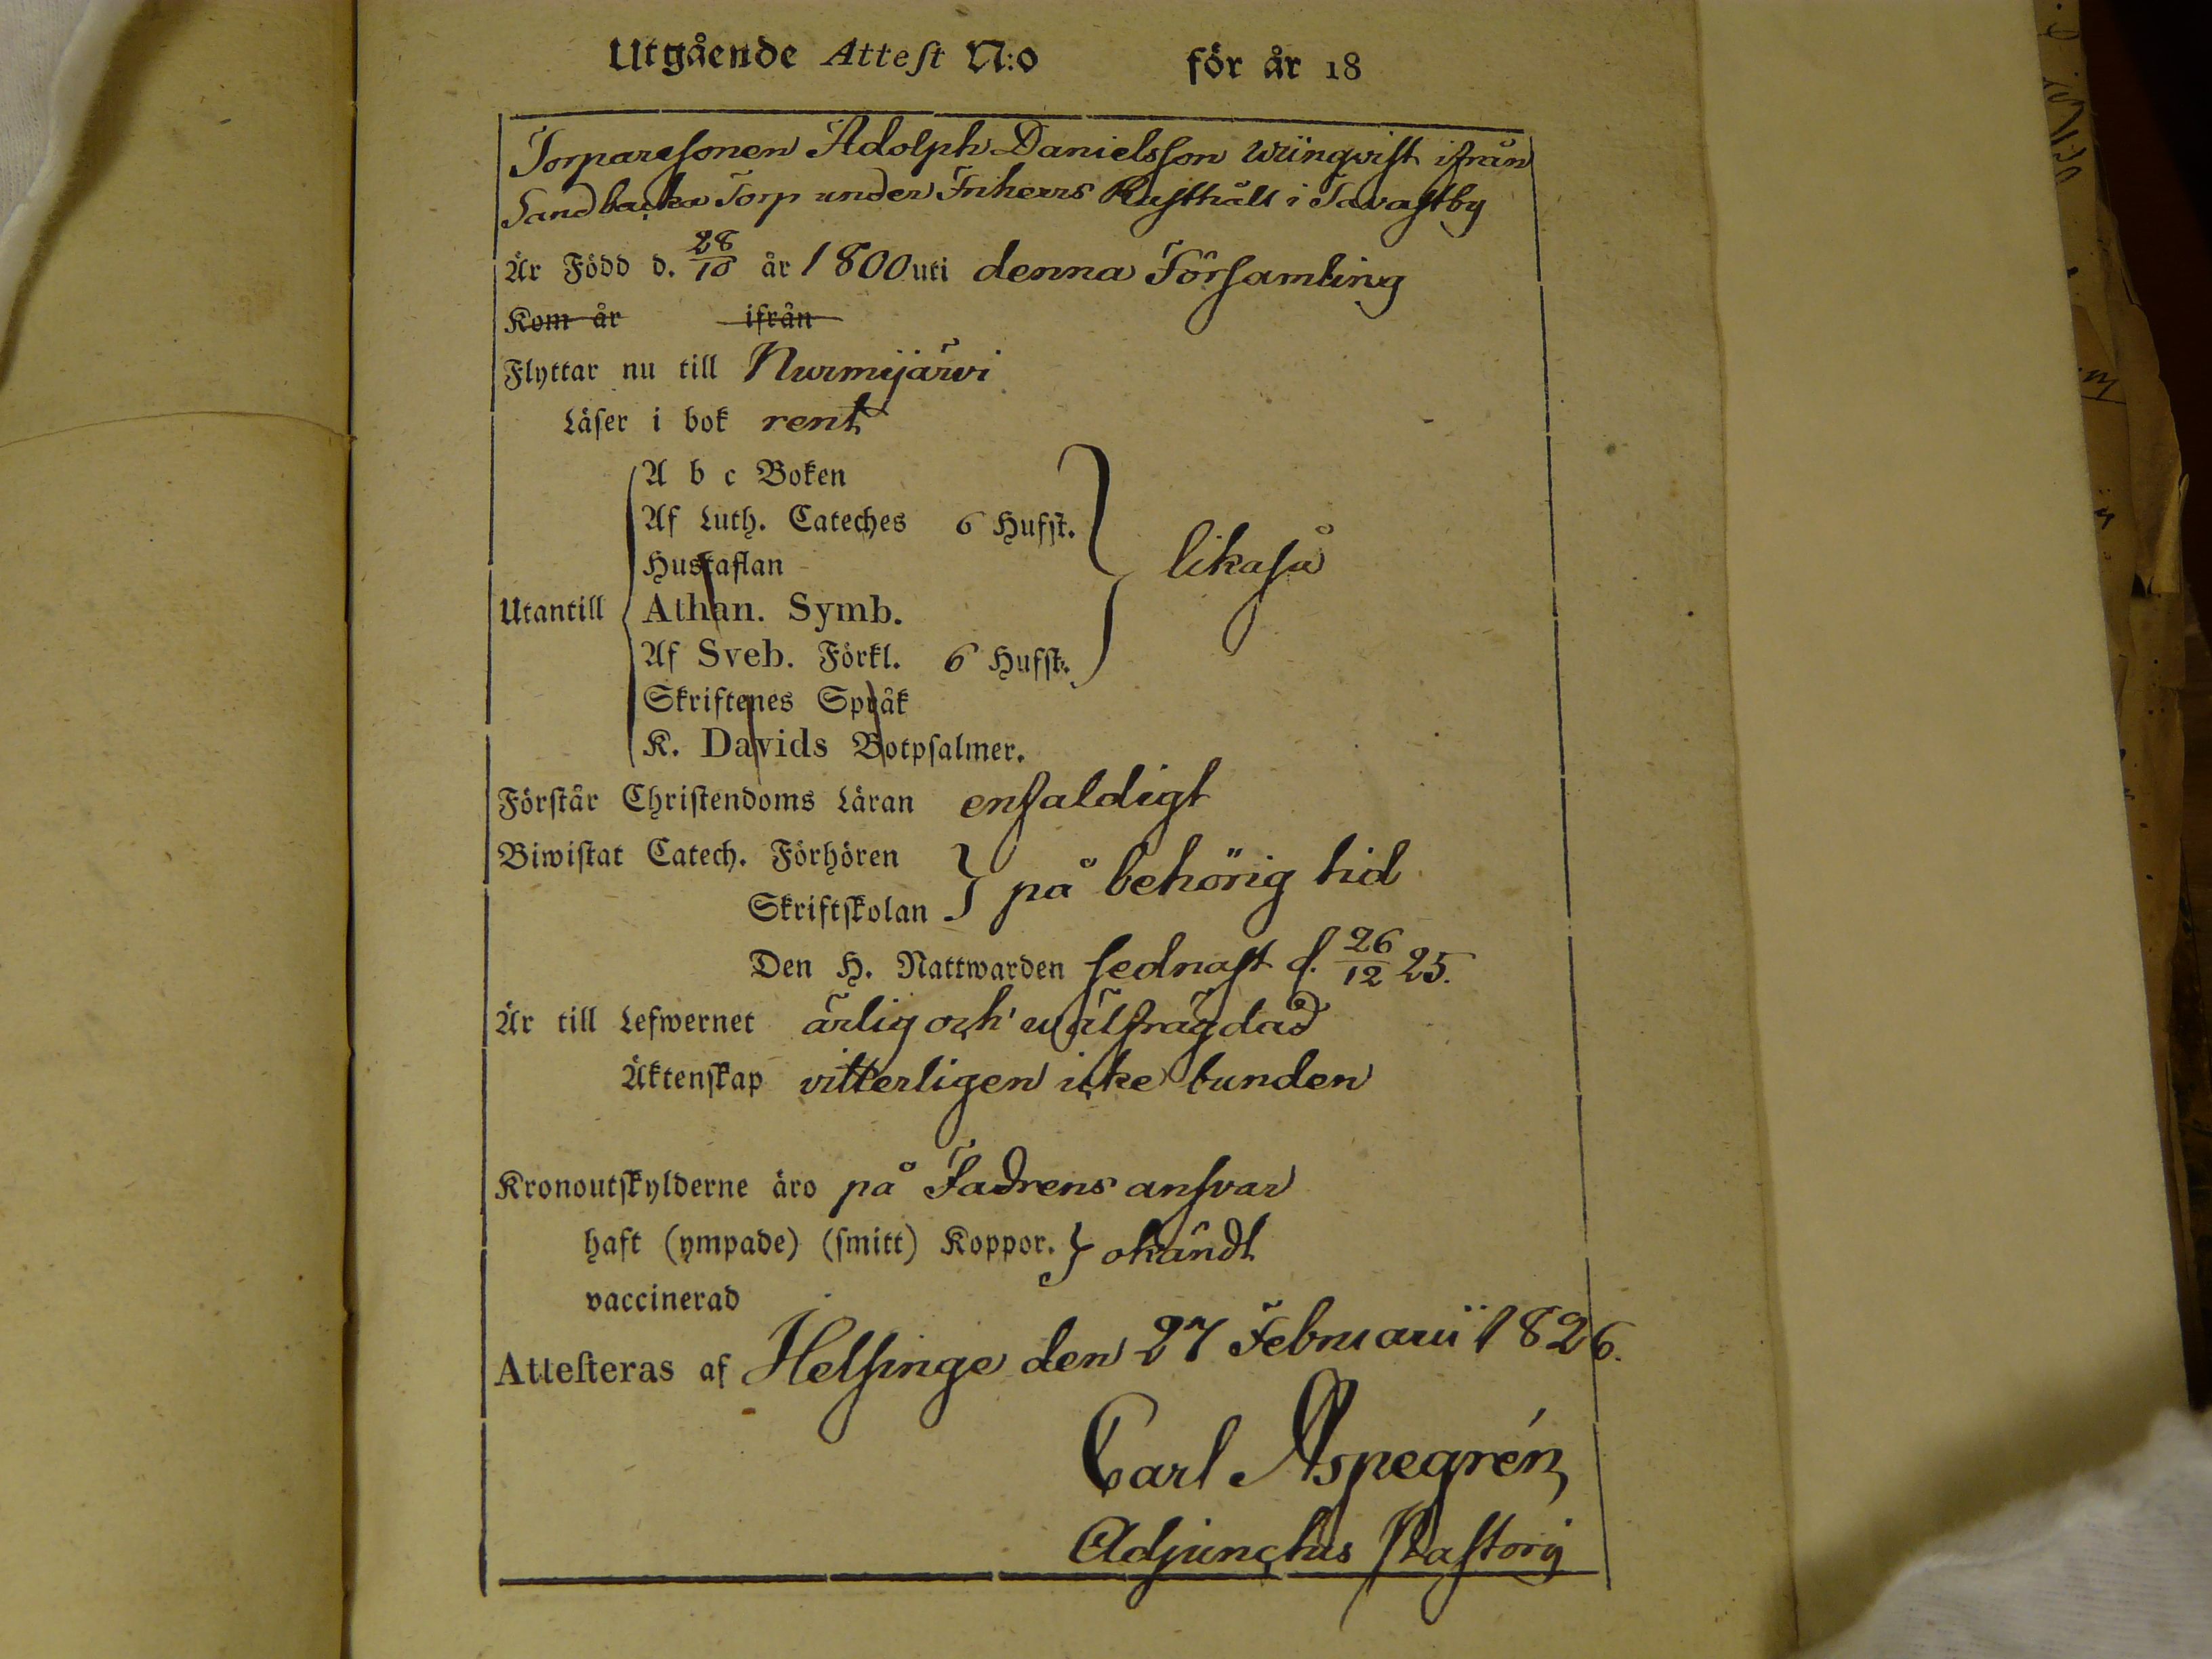 Utgående Attest N:o för år 18
Torparesonen Adolph Danielsson Wünqvist ifrån
Sandbacka Torp under Inherrs Rusthåll i Tavastby
Är Född d. 28/10 år 1800 uti denna Församling
Kom år ifrån
Flyttar nu till Nurmijärvi
Läser i bok rent
A b c Boken
Af Luth. Cateches 6 Hufst.
Hustaflan
likaså
Utantill Athan. Symb.
Af Sveb. Förkl. 6 Hufst.
Skriftenes Språk
K. Davids Botpsalmer.
Förstår Christendoms Läran enfaldigt
Biwistat Catech. Förhören
på behörig tid
Skriftskolan
Den H. Nattwarden sednast d. 26/12 25.
Är till Lefwernet ärlig och wälfrägdad
Äktenskap vitterligen icke bunden
Kronoutskylderne äro på Fadrens ansvar
haft (ympade) (smitt) Koppor. okändt
vaccinerad
Attesteras af Helsinge den 27 Februarii 1826.
Carl Aspegrén
Adjunctus Pastorij